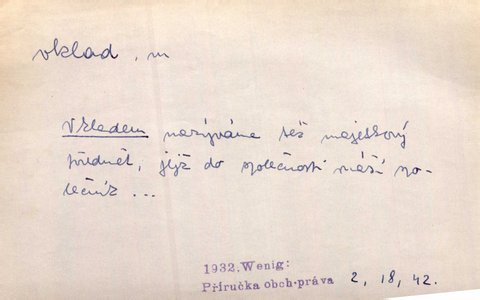 vklad, m
Vkladem nazýváme též majetkový
předmět, jejž do společnosti vnáší spo-
lečník ...
1932, Wenig:
Příručka obch. práva 2, 18, 42.